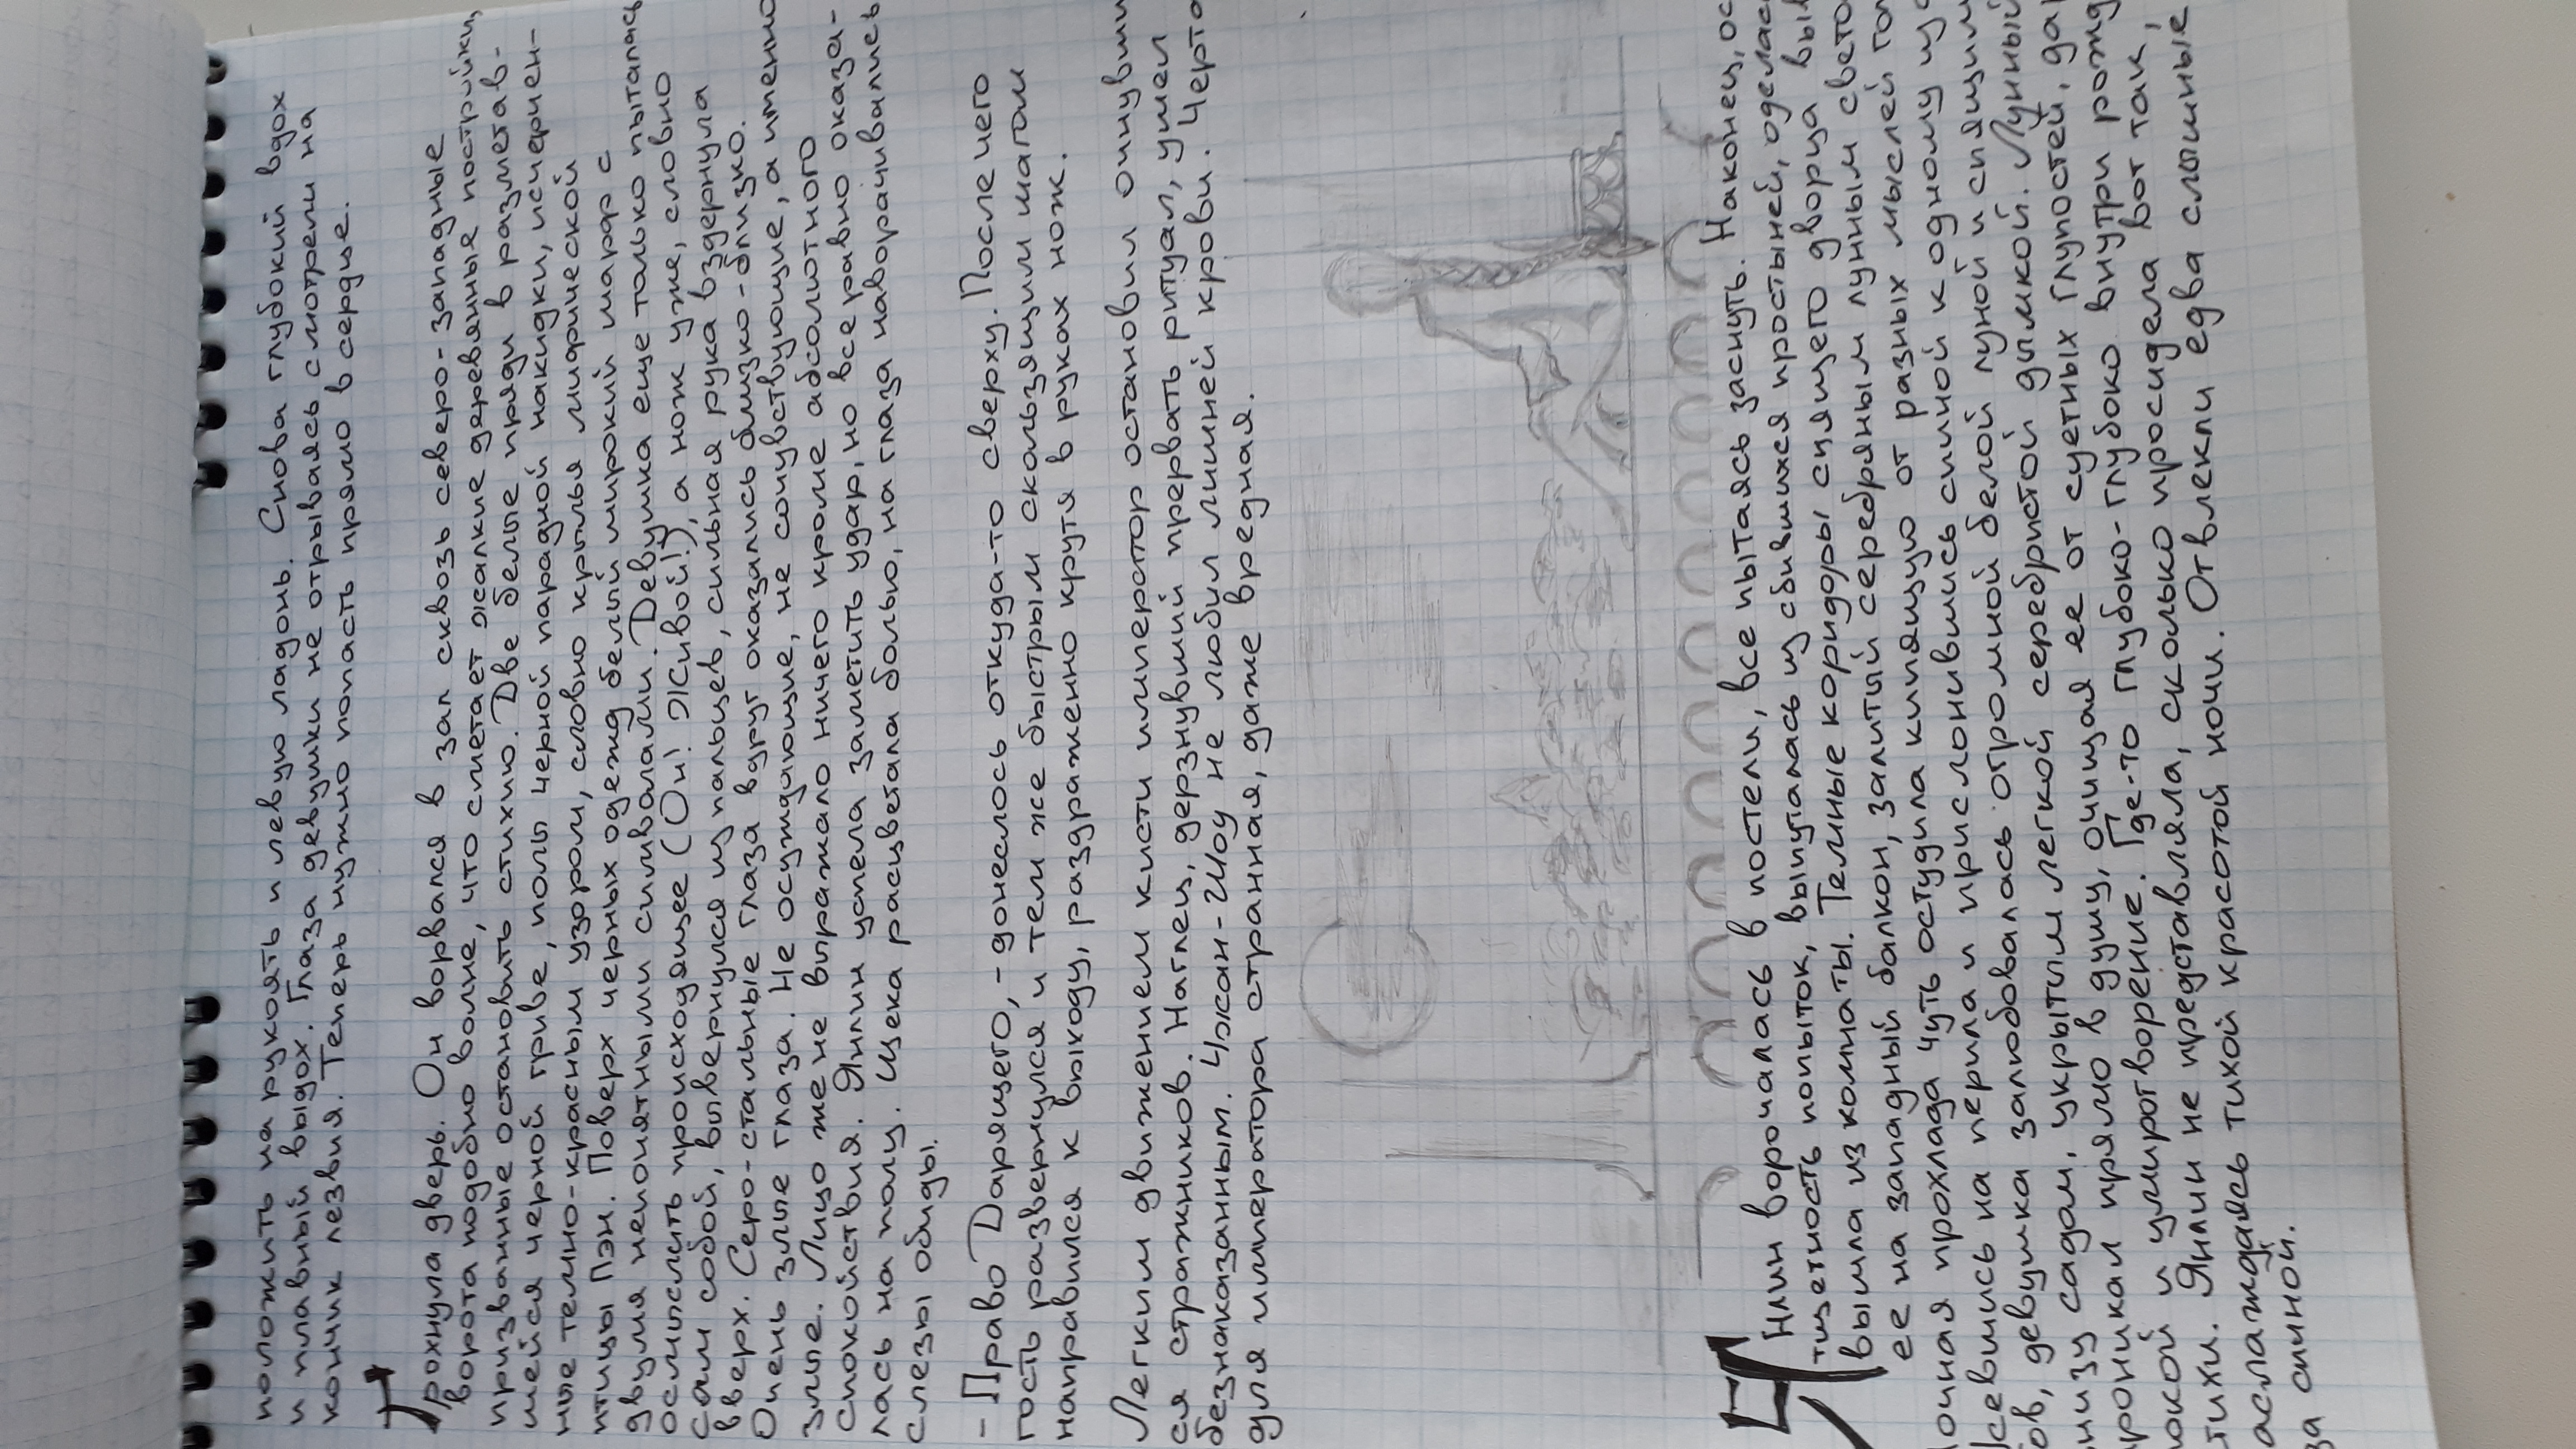 положить на рукоять и левую ладонь. Снова глубокий вдох
и плавный выдох. Глаза девушки не отрываясь смотрели на
кончик лезвия. Теперь нужно попасть прямо в сердце.
Грохнула дверь. Он ворвался в зал сквозь северо-западные
ворота подобно волне, что сметает жалкие деревянные постройки,
призванные остановить стихию. Две белые пряди в разметав-
шейся черной гриве, полы черной парадной накидки, исчерчен-
ные темно-красным узором, словно крылья мифической
птицы Пэн. Поверх черных одежд белый широкий шарф с
двумя непонятными символами. Девушка еще только пыталась
осмыслить происходящее (Он! Живой!), а нож уже, словно
сам собой, вывернулся из пальцев, сильная рука вздернула
вверх. Серо-стальные глаза вдруг оказались близко-близко.
Очень злые глаза. Не осуждающие, не сочувствующие, а именно
злые. Лицо же не выражало ничего кроме абсолютного
спокойствия. Янлин успела заметить удар, но все равно оказа-
лась на полу. Щека расцветала болью, на глаза наворачивались
слезы обиды.
- Право Дарящего, - донеслось откуда-то сверху. После чего
гость развернулся и тем же быстрым скользящим шагом
направился к выходу, раздраженно крутя в руках нож.
Легким движением кисти император остановил очнувши
ся стражников. Наглец, дерзнувший прервать ритуал, ушел
безнаказанным. Чжан-Шоу не любил лишней крови. Черта
для императора странная, даже вредная.
Янлин ворочалась в постели, все пытаясь заснуть. Наконец, ос
тщетность попыток, выпуталась из сбившихся простыней, оделась
вышла из комнаты. Темные коридоры спящего дворца выв
ее на западный балкон, залитый серебряным лунным свето
ночная прохлада чуть остудила кипящую от разных мыслей гол
севшись на перила и прислонившись спиной к одному из с
ов, девушка залюбовалась огромной белой луной и спящим
низу садом, укрытым легкой серебристой дымкой. Лунный
роникал прямо в душу, очищая ее от суетных глупостей, дар
окой и умиротворение. Где-то глубоко-глубоко внутри рожд
тихи. Янлин не представляла, сколько просидела вот так,
аслаждаясь тихой красотой ночи. Отвлекли едва слышные
за спиной.